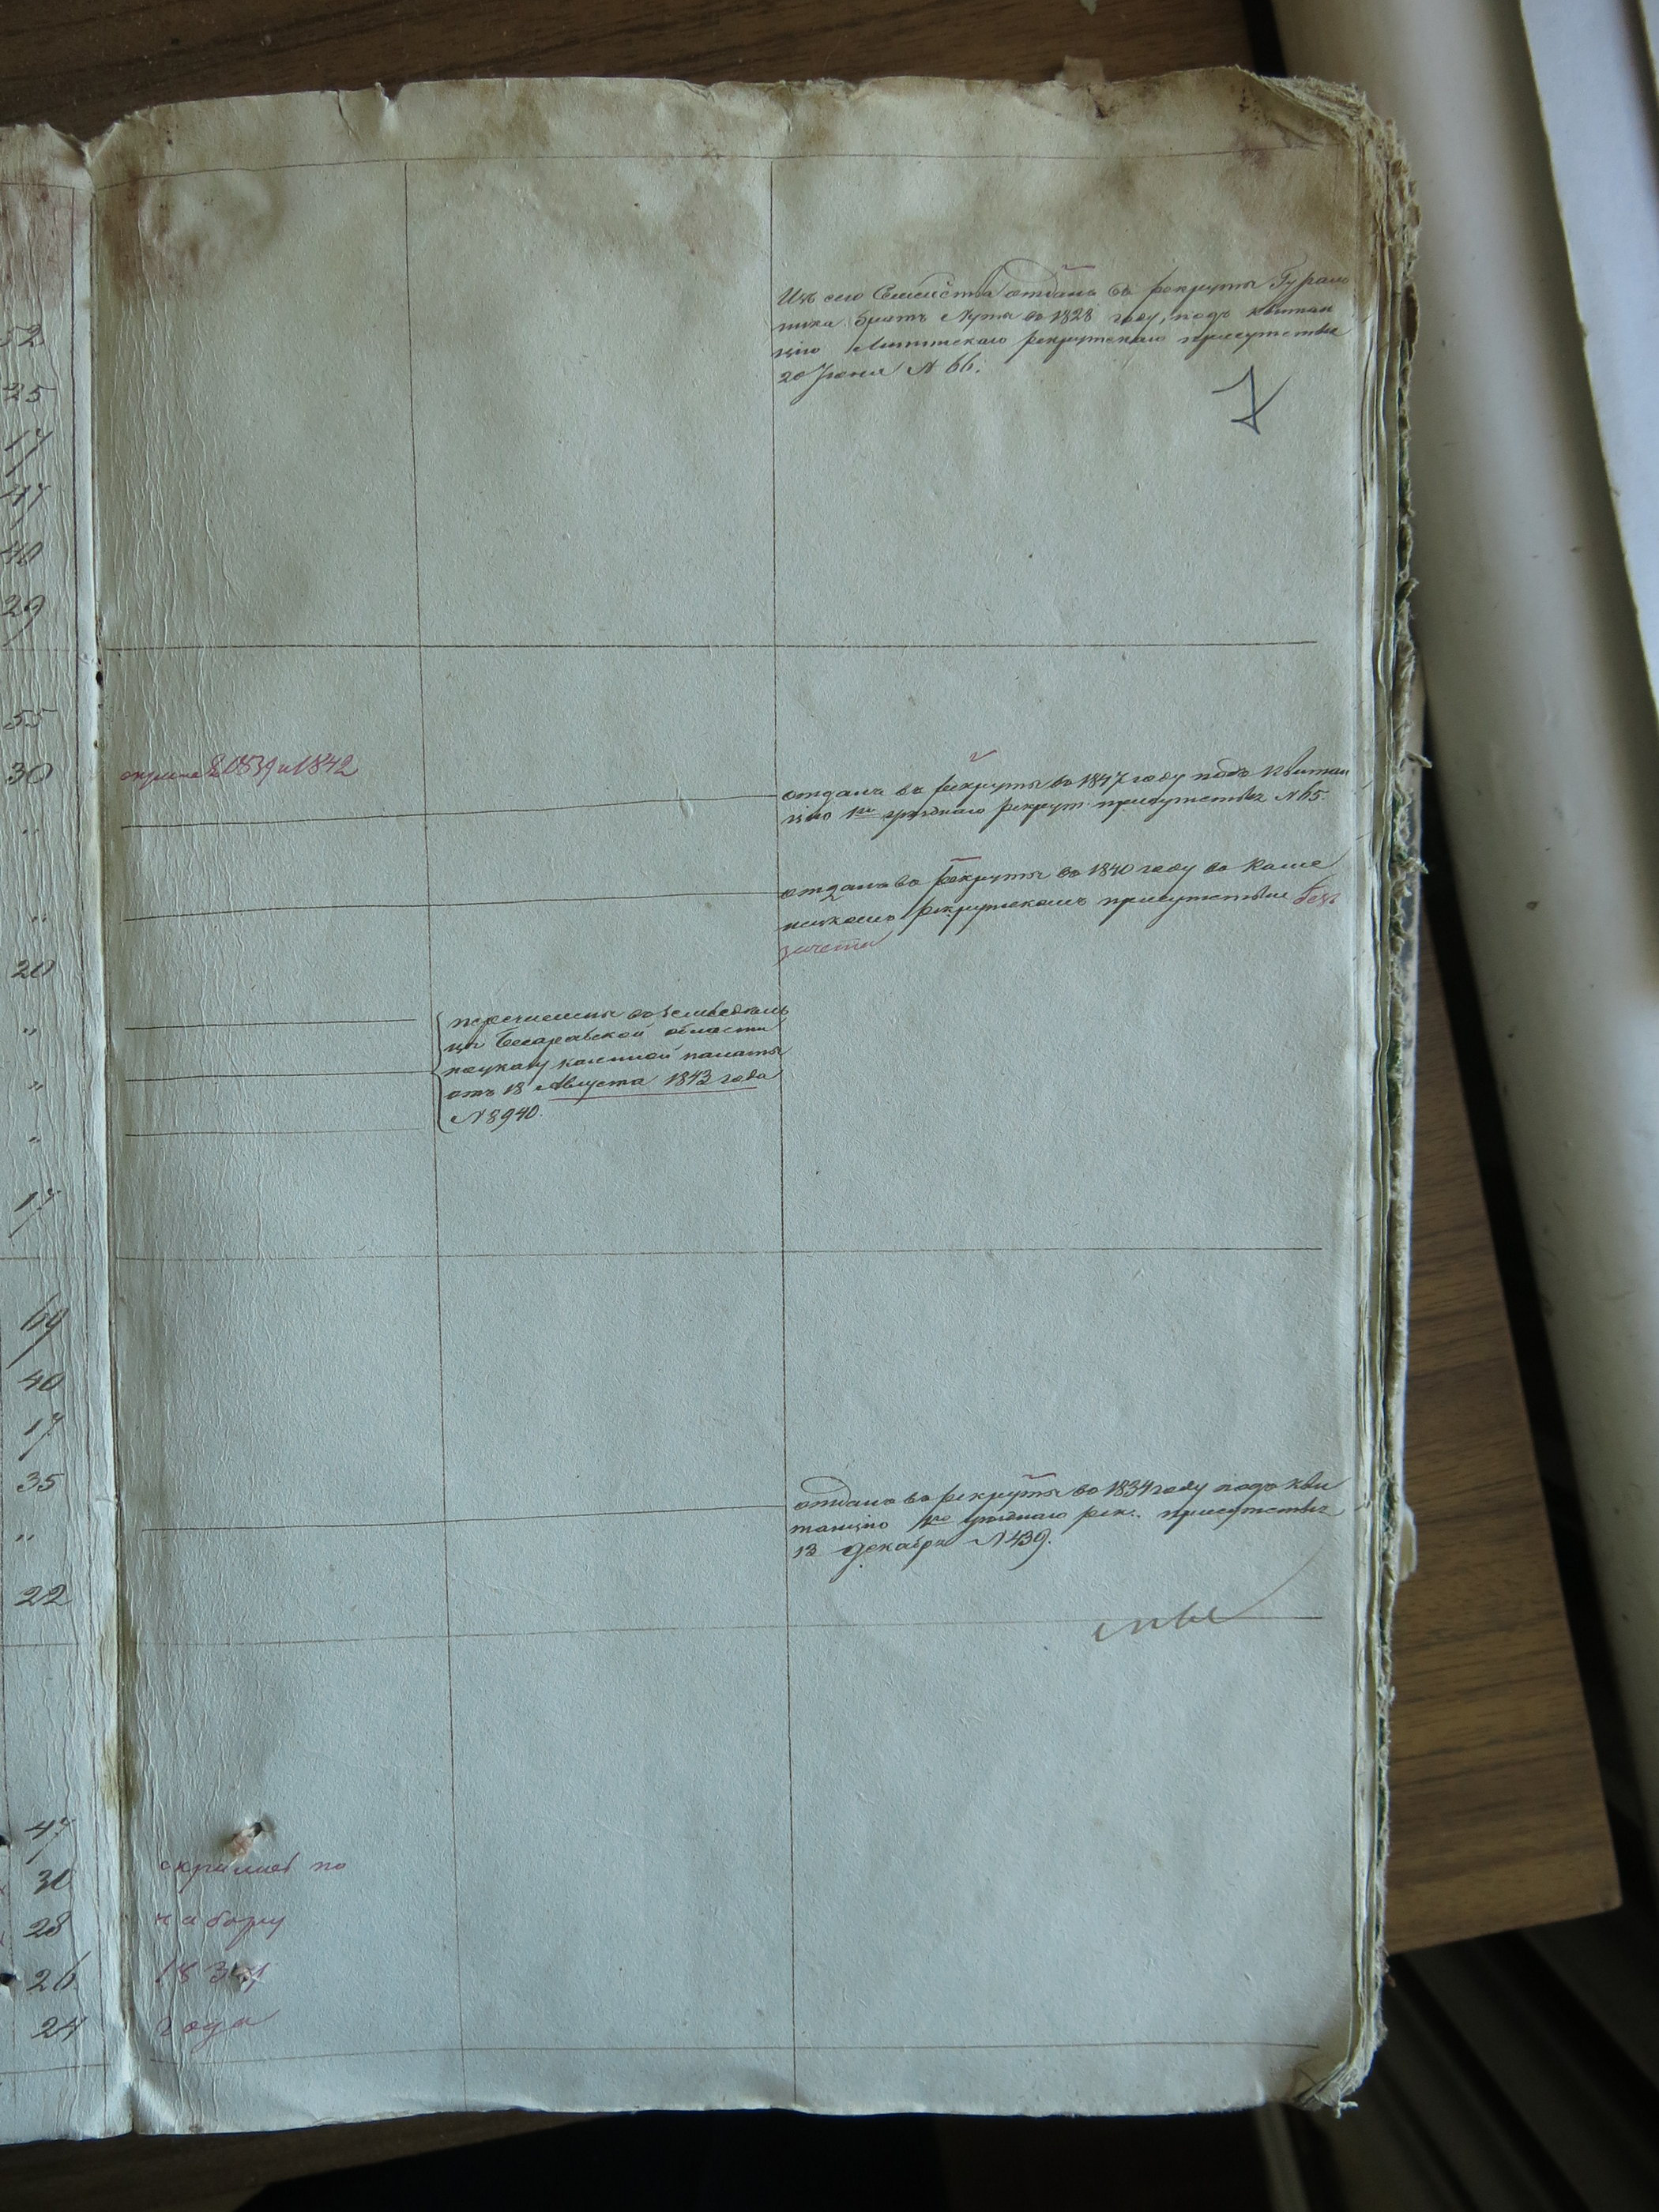 Изъ сего Семейства отданъ въ рекруты Гурало
ника братъ Лука въ 1828 году, подъ квитан
цiю рекрутскаго присутствiя
20 Iюня № 66.
7
52
25
17
47
40
29
55
30
1839 и 1842
отданъ въ рекруты въ 1847 году подъ квитан
цiю 1го уѣзднаго рекрут. присутствiя № 65.
"
отданъ въ рекруты въ 1840 году въ Каме
нецкомъ рекрутскомъ присутствiи безъ
зачета
"
20
перечислены въ земледѣль
цы Бесарабской области
по указу казенной палаты
отъ 18 Августа 1843 года
№ 8940.
"
"
"
17
69
40
17
35
отданъ въ рекруты въ 1834 году подъ кви
танцiю 1го уѣзднаго рек. присутствiя
13 декабря № 439.
"
22
47
30
по
28
набору
26
183
24
года